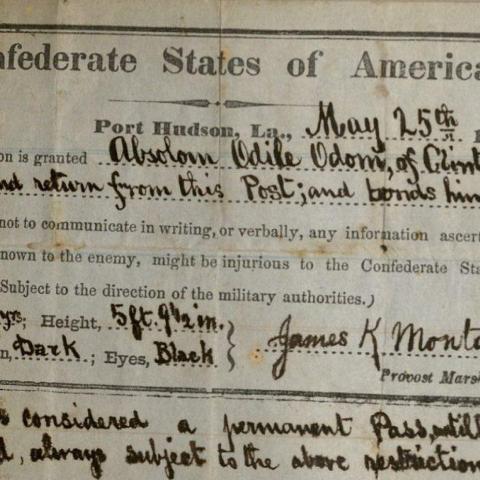 nfederate States of America
Port Hudson, La., May 25th 1
on is granted Absolom Odile Odom, of Clint
nd return from this Post; and bonds him
not to communicate in writing, or verbally, any information ascert
nown to the enemy, might be injurious to the Confederate Sta
Subject to the direction of the military authorities.)
yrs; Height, 5 ft. 9 1/2 in.
n, Dark; Eyes, Black } James K Monto
Provost Mars
s considered a permanent Pass, until
d, always subject to the above restriction